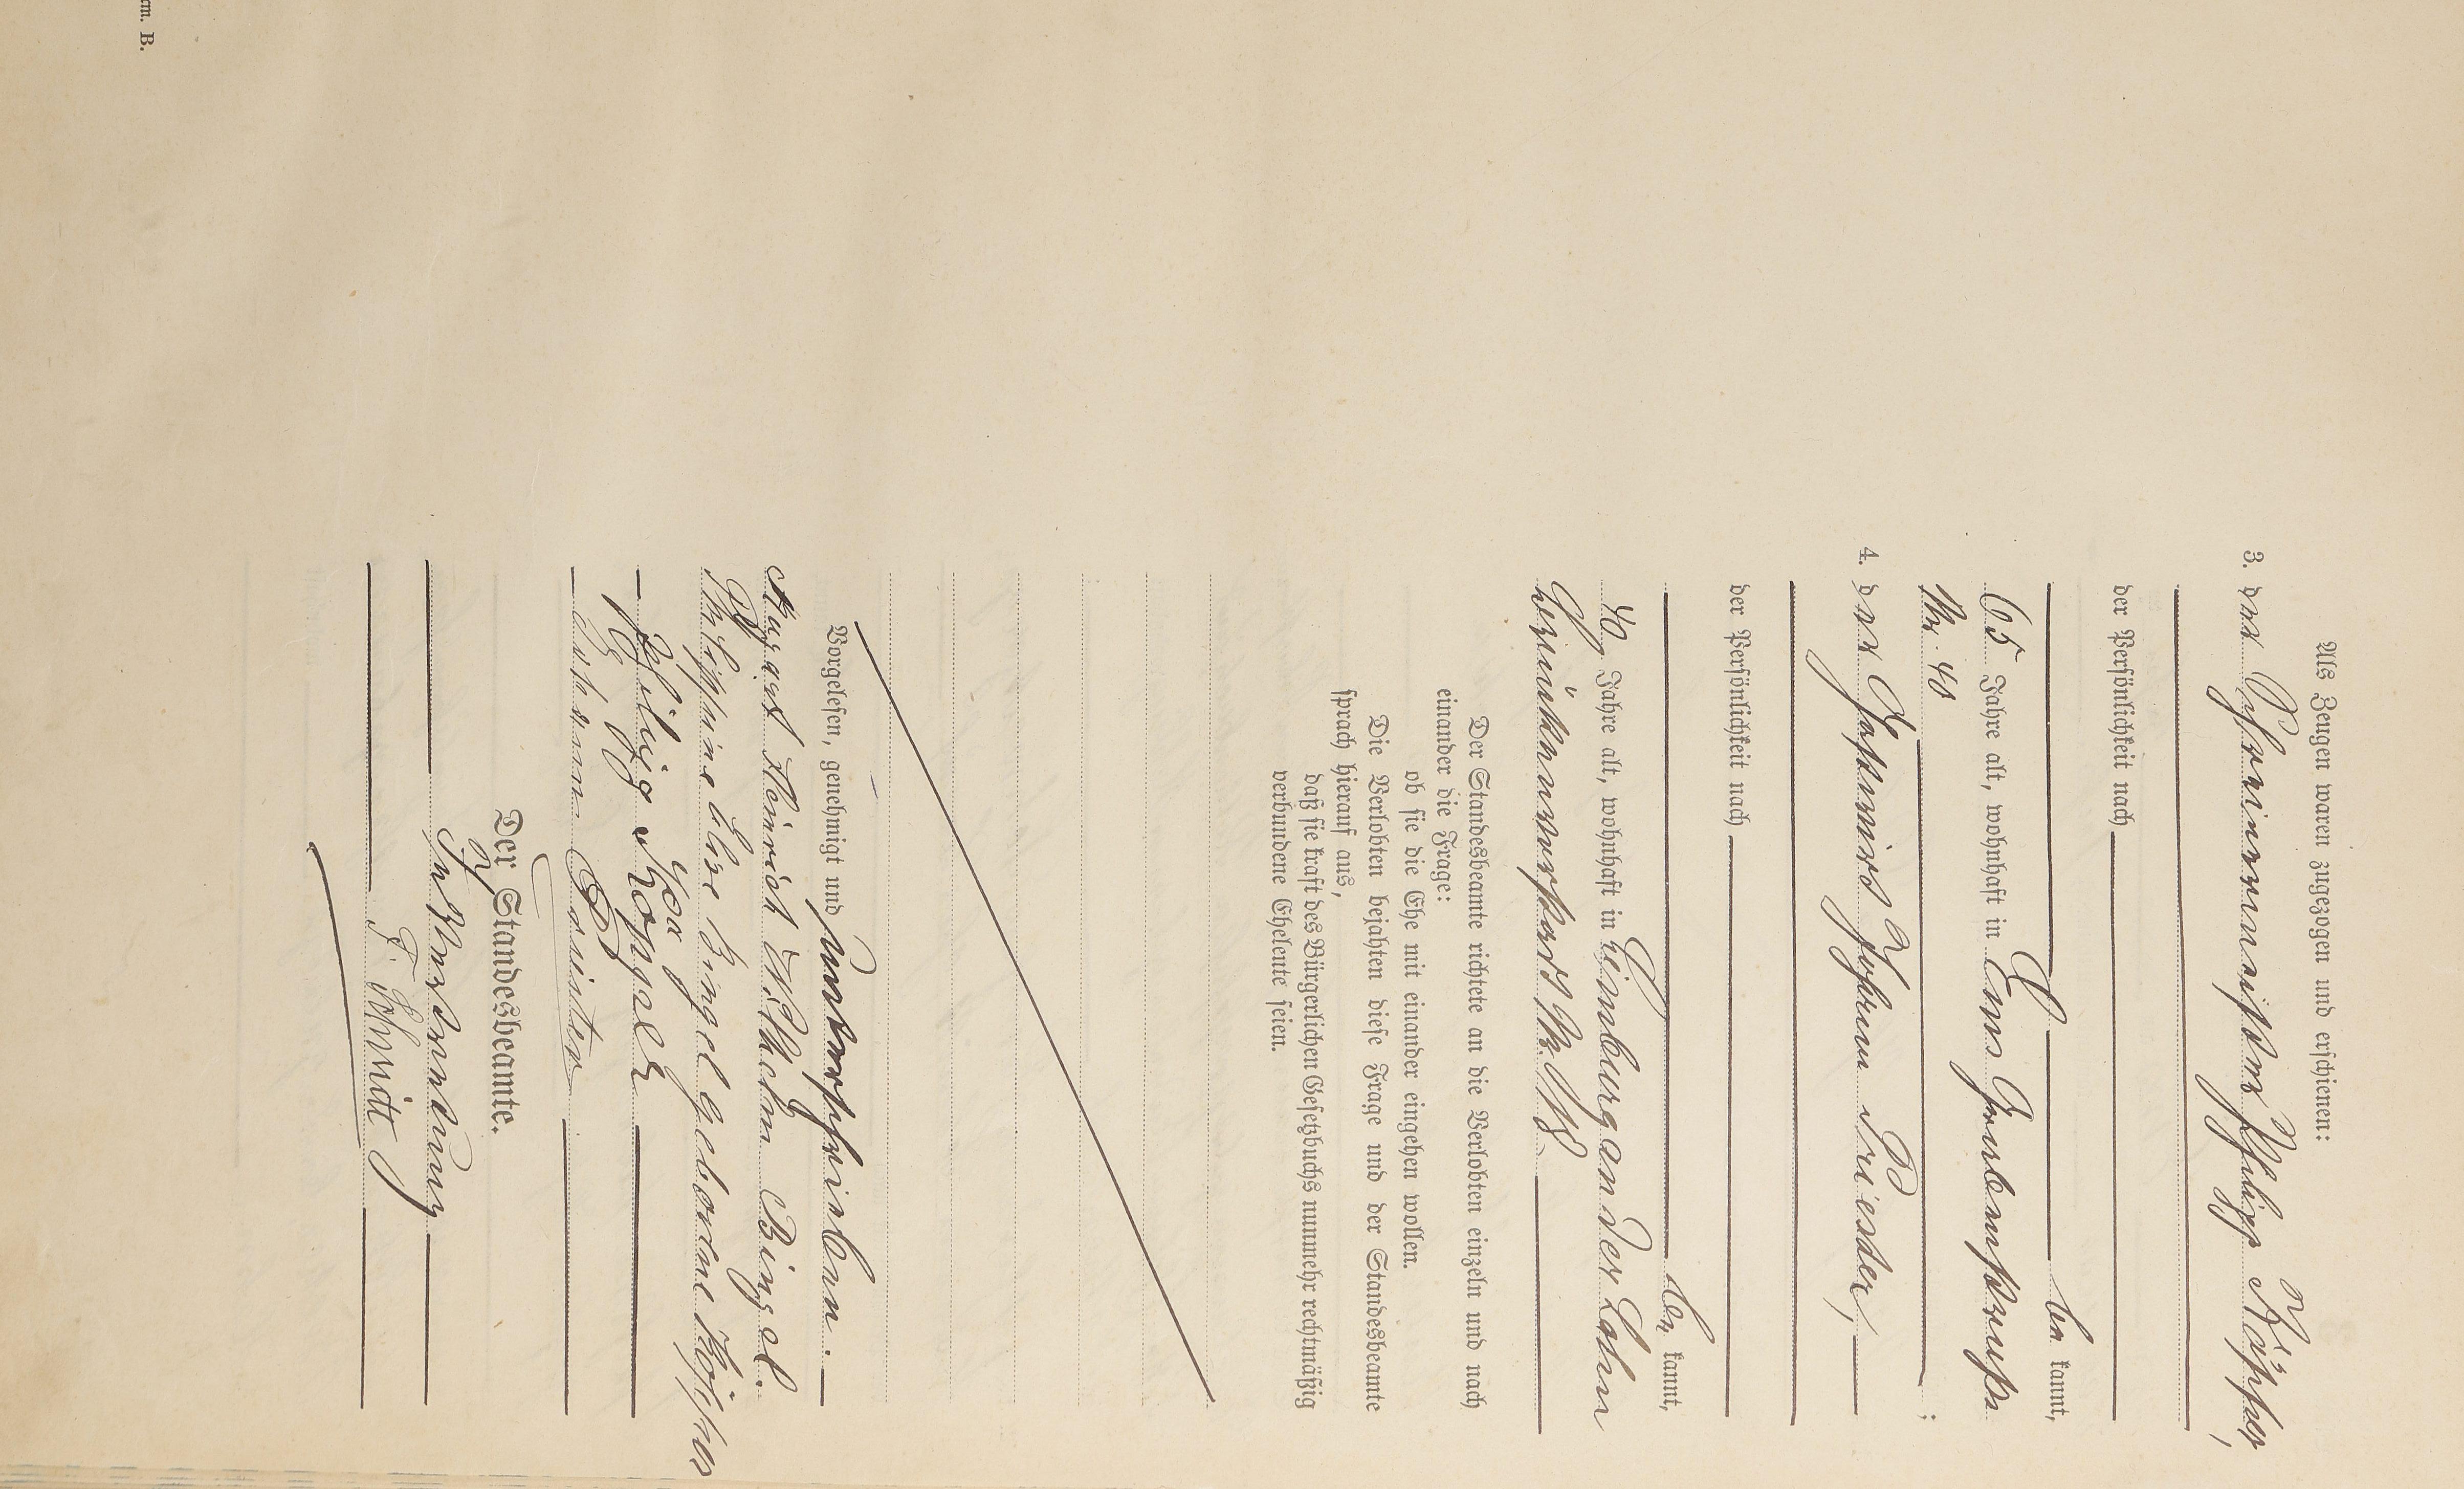 Als Zeugen waren zugezogen und erschienen:
3. der Schreinermeister Philipp Köpper,
der Persönlichkeit nach
be kannt,
65 Jahre alt, wohnhaft in Ems
Nr. 40 ;
4. der Gastwirt Johann
der Persönlichkeit nach
be kannt,
40 Jahre alt, wohnhaft in Limburg an der Lahn
Brückenvorstadt Nr.
Der Standesbeamte richtete an die Verlobten einzeln und nach
einander die Frage:
ob sie die Ehe mit einander eingehen wollen.
Die Verlobten bejahten diese Frage und der Standesbeamte
sprach hierauf aus,
daß sie kraft des Bürgerlichen Gesetzbuchs nunmehr rechtmäßig
verbundene Eheleute seien.
Vorgelesen, genehmigt und unterschrieben.
August Heinrich Wilhelm Bingel.
Philippine Elise Bingel geborene Köpper
Philipp
Johann
Der Standesbeamte.
In Vertretung